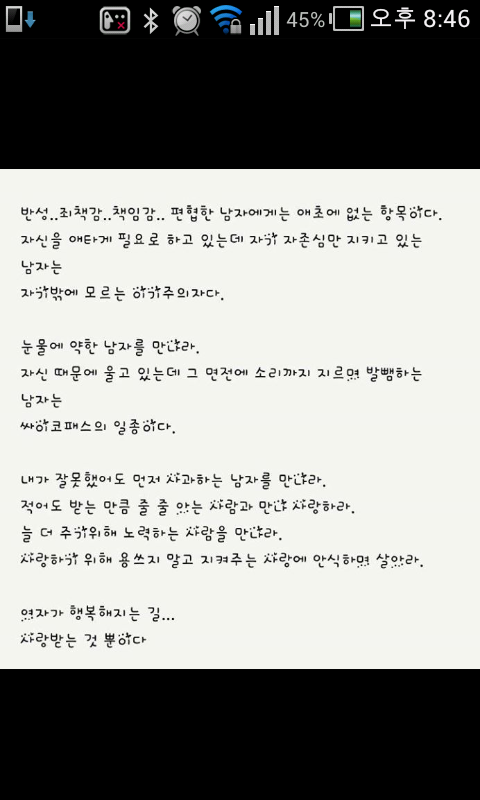 45% 오후 8:46
반성..죄책감..책임감.. 편협한 남자에게는 애초에 없는 항목이다.
자신을 애타게 필요로 하고 있는데 자기 자존심만 지키고 있는
남자는
자기밖에 모르는 이기주의자다.
눈물에 약한 남자를 만나라.
자신 때문에 울고 있는데 그 면전에 소리까지 지르며 발뺌하는
남자는
싸이코패스의 일종이다.
내가 잘못했어도 먼저 사과하는 남자를 만나라.
적어도 받는 만큼 줄 줄 아는 사람과 만나 사랑하라.
늘 더 주기위해 노력하는 사람을 만나라.
사랑하기 위해 용쓰지 말고 지켜주는 사랑에 안식하며 살아라.
여자가 행복해지는 길...
사랑받는 것 뿐이다